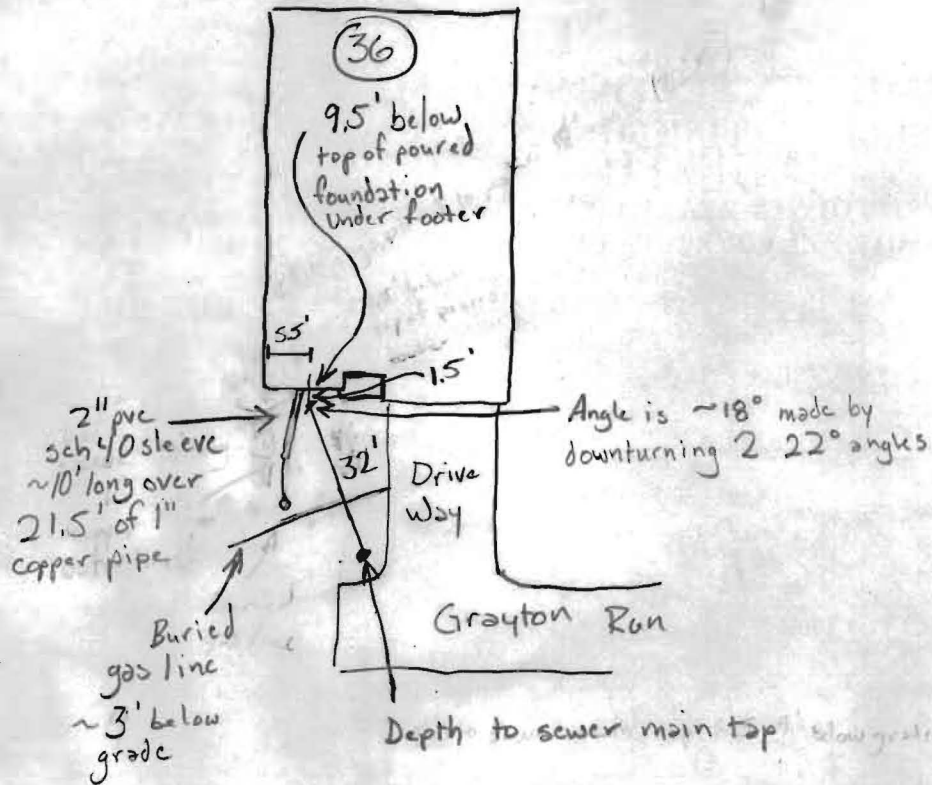 36
9.5' below
top of poured
foundation
under footer
55'
1.5'
2" pvc
sch 40 sleeve
~10' long over
21.5' of 1"
copper pipe
Angle is ~18° made by
downturning 2 22° angles
32'
Drive
Way
Grayton Run
Buried
gas line
~3' below
grade
Depth to sewer main tap
below grade